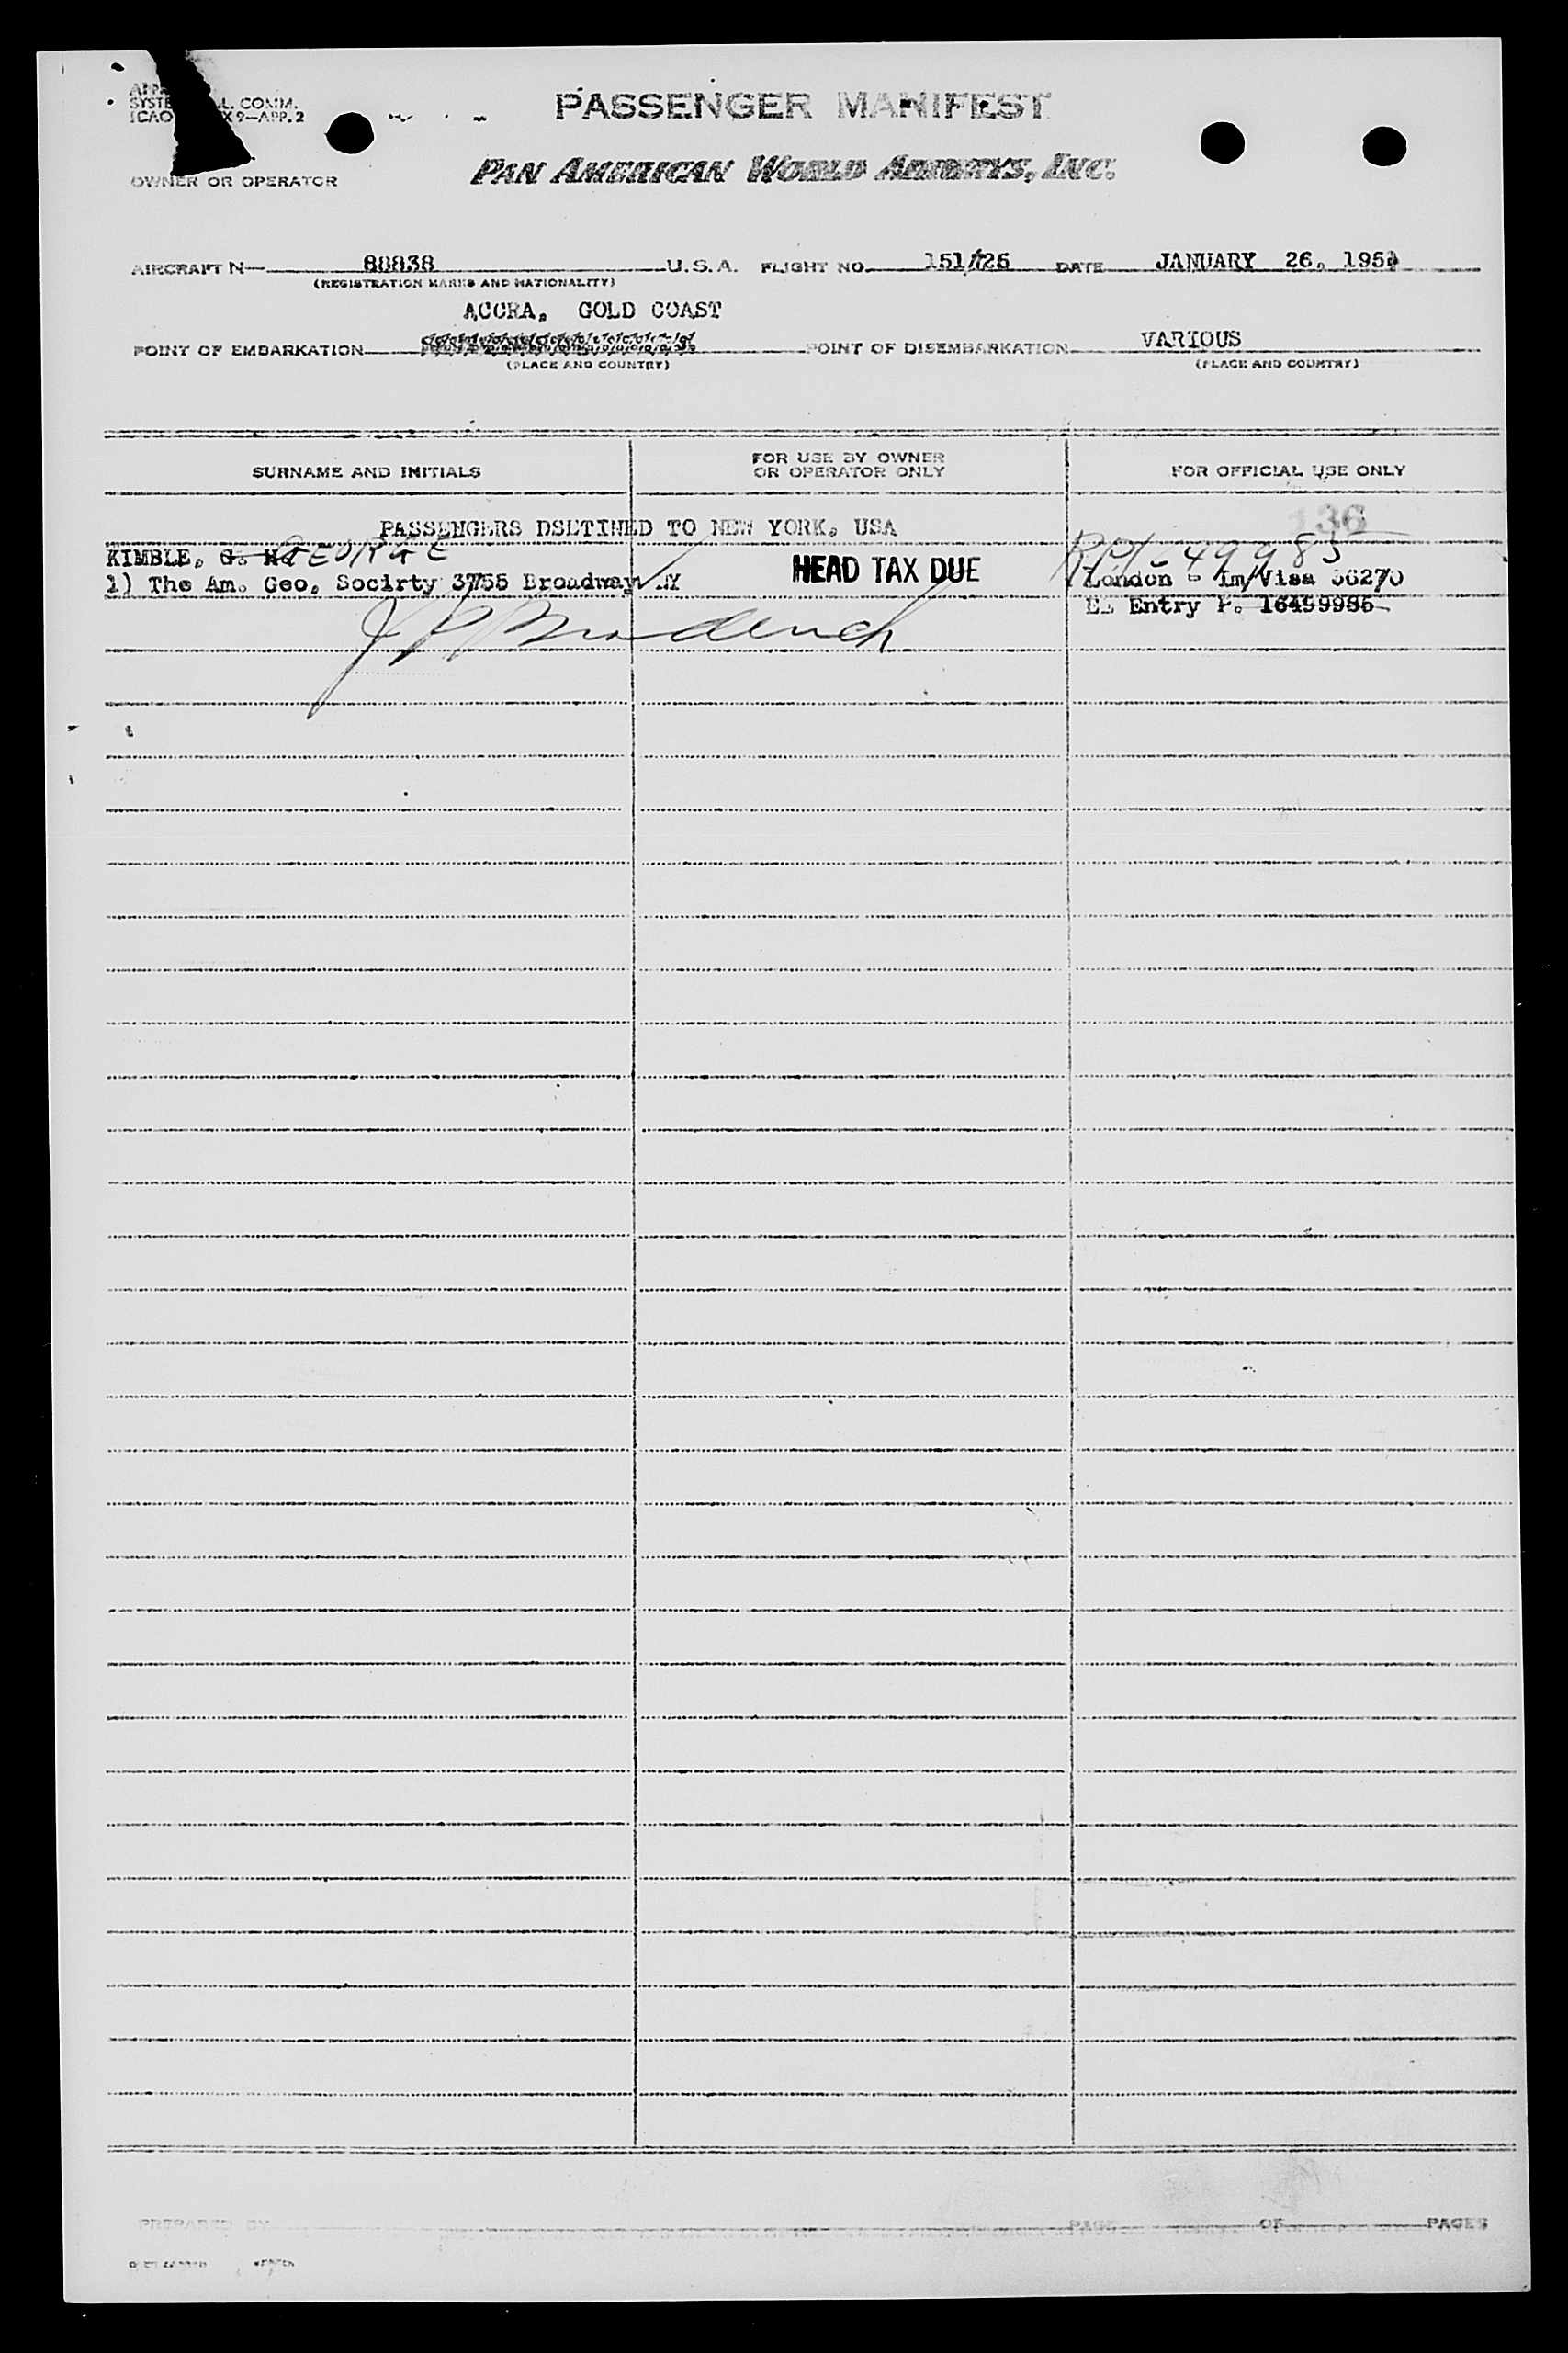 SYSTE L. COMM.
ICAO X 9—APP. 2
PASSENGER MANIFEST
PAN AMERICAN WORLD AIRWAYS, INC.
OWNER OR OPERATOR
AIRCRAFT N— 88838 U.S.A. FLIGHT NO. 151/126 DATE JANUARY 26, 195
(REGISTRATION MARKS AND NATIONALITY)
ACCRA, GOLD COAST
POINT OF EMBARKATION POINT OF DISEMBARKATION VARIOUS
(PLACE AND COUNTRY) (PLACE AND COUNTRY)
SURNAME AND INITIALS FOR USE BY OWNER OR OPERATOR ONLY FOR OFFICIAL USE ONLY
136
PASSENGERS DSETINED TO NEW YORK, USA
KIMBLE, G. H. GEORGE
HEAD TAX DUE
1) The Am. Geo. Socirty 3755 Broadway NY
London - Im/Visa 36270
Entry P. 16499985
PREPARED BY PAGE OF PAGES